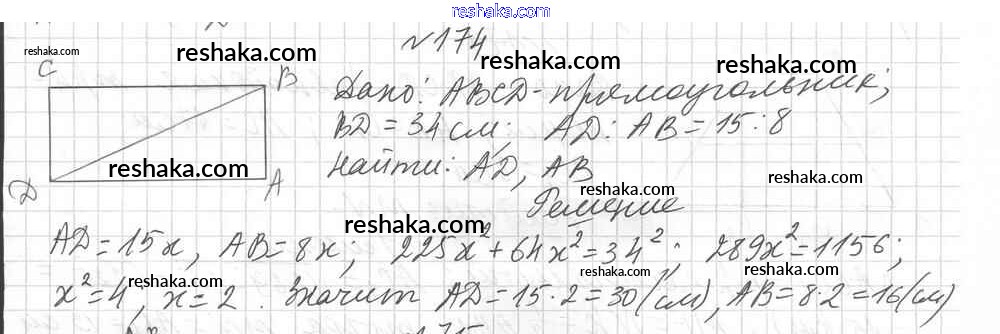 www.reshaka.com
reshaka.com
reshaka.com
№174
reshaka.com
reshaka.com
C
B
Дано: ABCD - прямоугольник;
BD = 34 см; AD : AB = 15 : 8
reshaka.com
Найти: AD, AB
reshaka.com
reshaka.com
D
A
Решение
reshaka.com
AD = 15x, AB = 8x; 225x² + 64x² = 34²; 289x² = 1156;
reshaka.com
reshaka.com
x² = 4, x = 2. Значит AD = 15·2 = 30 (см), AB = 8·2 = 16 (см)